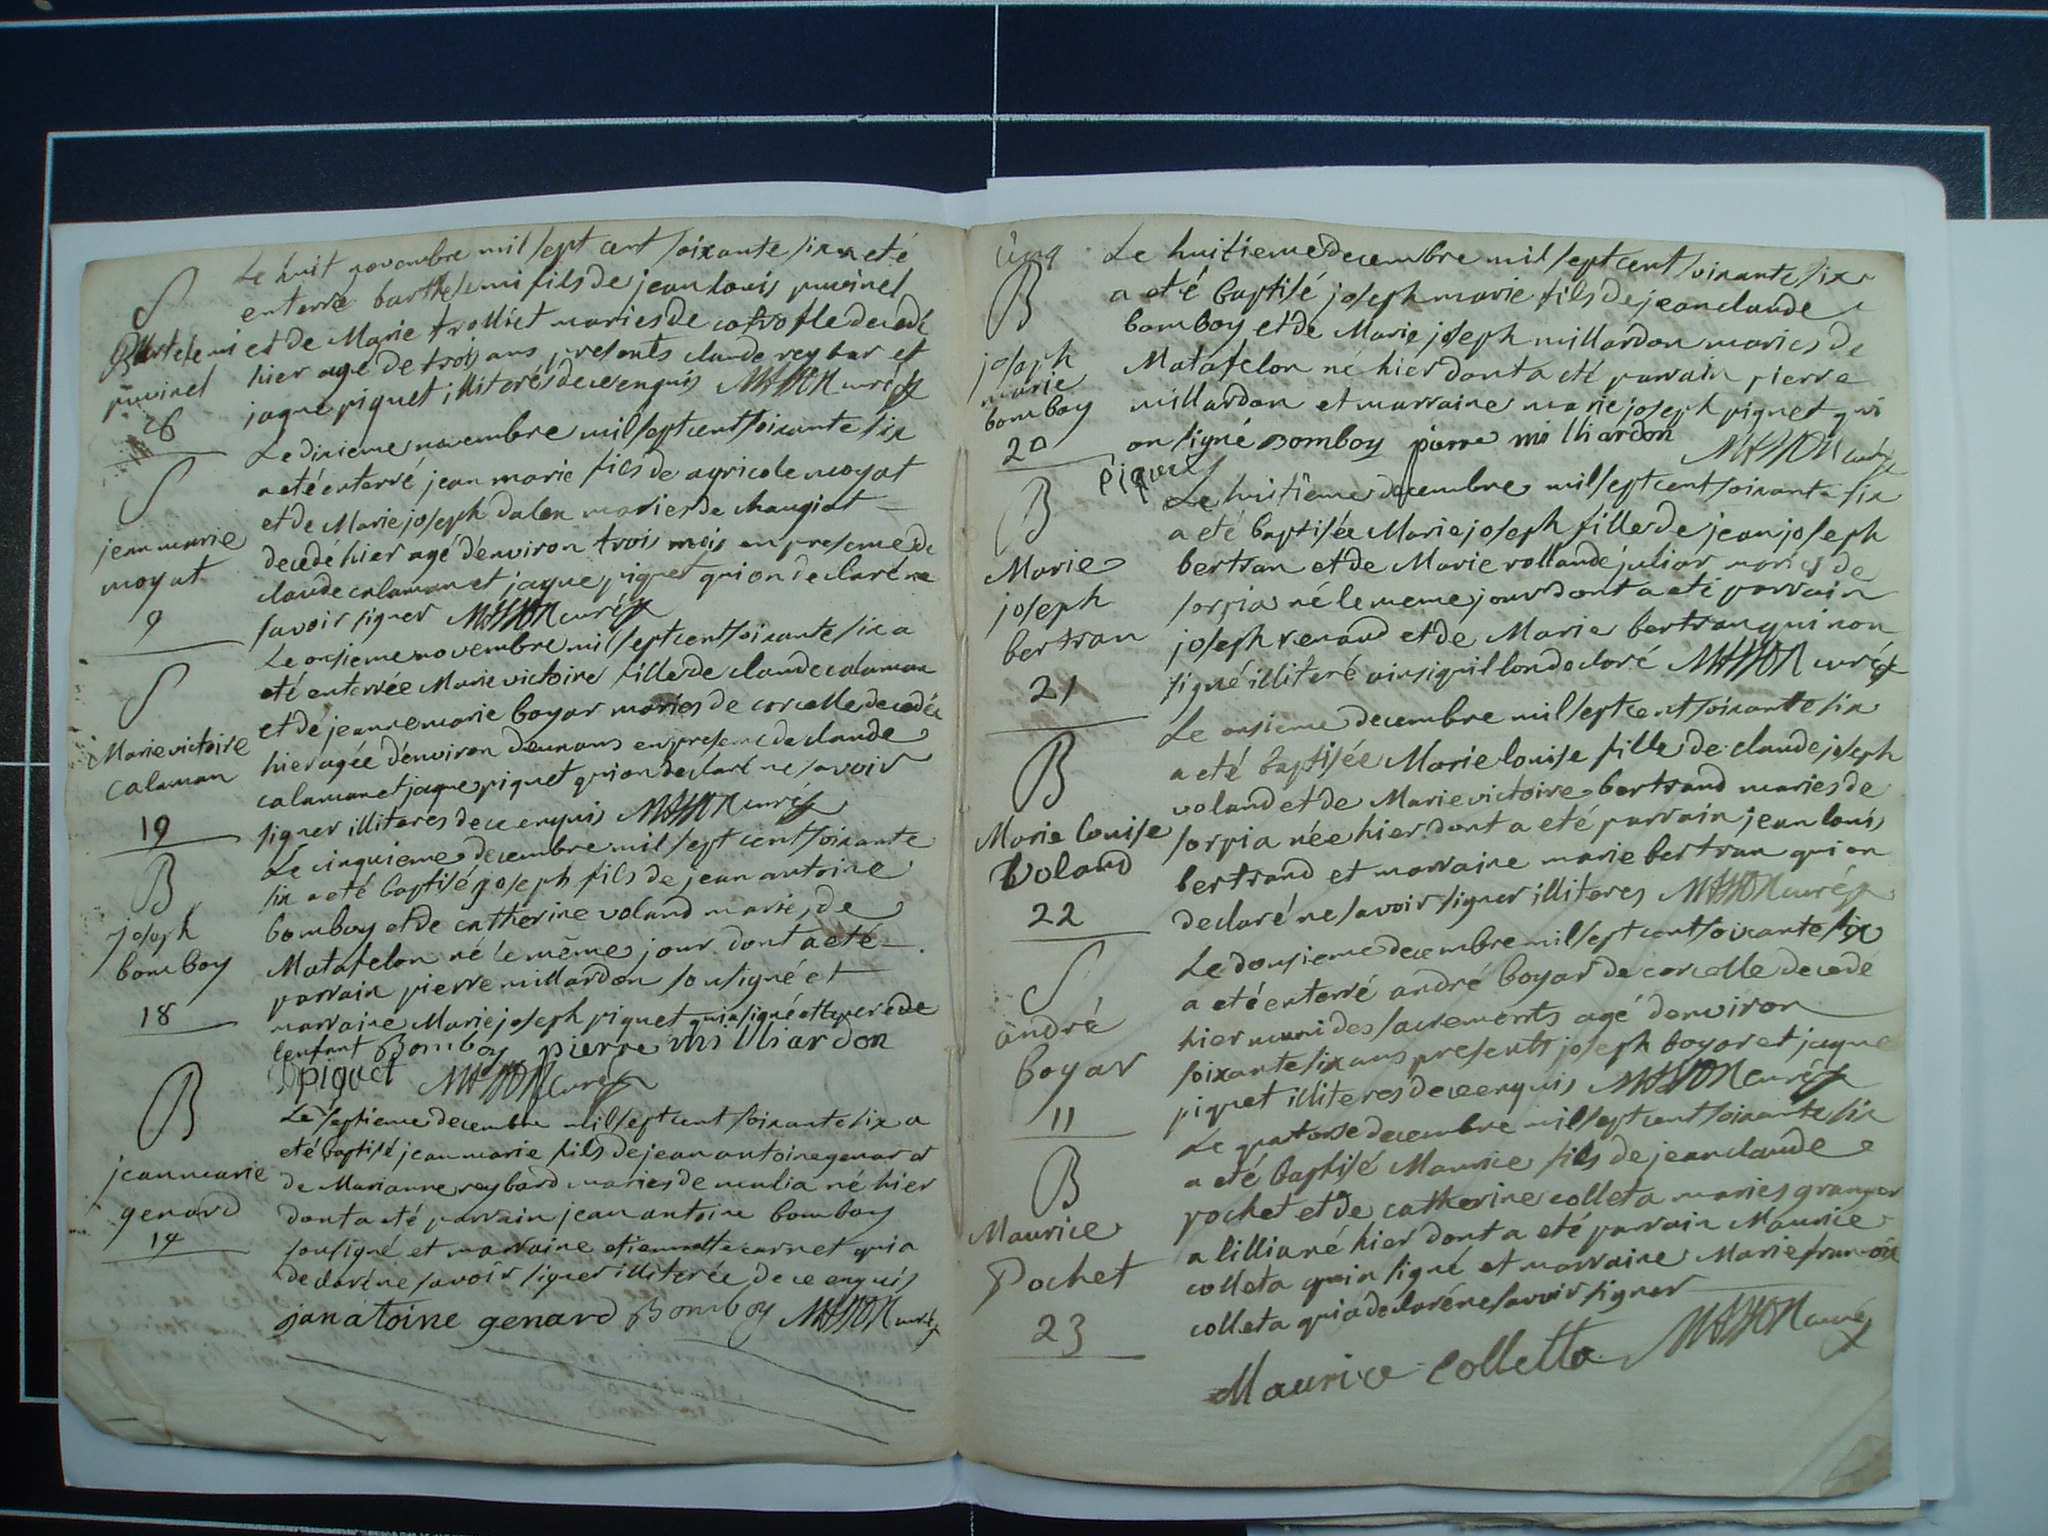 S
Bartelemi
puvinel
8
Le huit novembre mil sept cent soixante six a eté
enterré barthelemi fils de jean louis puvinel
et de Marie trolliet maries de decedé
hier agé de trois ans presents claude reybar et
jaque piquet illiterés de ce enquis MASSON curé
S
jean marie
moyat
9
Le dixieme novembre mil sept cent soixante six
a eté enterré jean marie fils de agricole moyat
et de Marie joseph dalen maries de chaugiat
decedé hier agé d'environ trois mois en presence de
claude calaman et jaque piquet qui on declaré ne
savoir signer MASSON curé
S
Marie victoire
calaman
19
Le onsieme novembre mil sept cent soixante six a
eté enterrée Marie victoire fille de claude calaman
et de jeanne marie boyar mariés de corcelle decedée
hier agée d'environ deux ans en presence de claude
calaman et jaque piquet qui on declaré ne savoir
signer illiteres de ce enquis MASSON curé
B
joseph
bomboy
18
Le cinquieme decembre mil sept cent soixante
six a eté baptisé joseph fils de jean antoine
bomboy et de catherine voland mariés de
Matafelon né le même jour dont a eté
parrain pierre millardon sousigné et
marraine Marie joseph piquet qui a signé et le pere de
lenfant Bomboy pierre milliardon
piquet MASSON curé
B
jean marie
genard
19
Le septieme decembre mil sept cent soixante six a
eté baptisé jean marie fils de jean antoine genar et
de Marianne reybard maries de né hier
dont a eté parrain jean antoine bomboy
sousigné et marraine etiennette carnet qui a
declaré ne savoir signer illiterée de ce enquis
jan atoine genard Bomboy MASSON curé
cinq
B
joseph
marie
bomboy
20
Le huitieme decembre mil sept cent soixante six
a eté baptisé joseph marie fils de jean claude
bomboy et de Marie joseph millardon maries de
Matafelon né hier dont a eté parrain pierre
millardon et marraine marie joseph piquet qui
on signé Bomboy pierre milliardon
piquet MASSON curé
B
Marie
joseph
bertran
21
Le huitieme decembre mil sept cent soixante six
a eté baptisée Marie joseph fille de jean joseph
bertran et de Marie rollande juliar mariés de
sorpia né le meme jour dont a eté parrain
joseph renaud et de Marie bertran qui non
signé illiteré ainsi quil lon declaré MASSON curé
B
Marie louise
Voland
22
Le onsieme decembre mil sept cent soixante six
a eté baptisée Marie louise fille de claude joseph
voland et de Marie victoire bertrand maries de
sorpia née hier dont a eté parrain jean louis
bertrand et marraine marie bertran qui on
declaré ne savoir signer illiteres MASSON curé
S
andré
boyar
11
Le dousieme decembre mil sept cent soixante six
a eté enterré andré boyar de corcelle decedé
hier muni des sacrements agé denviron
soixante six ans presents joseph boyar et jaque
piquet illiteres de ce enquis MASSON curé
B
Maurice
Pochet
23
Le quatorse decembre mil sept cent soixante six
a eté baptisé Maurice fils de jean claude
pochet et de catherine colleta maries granger
a lillia né hier dont a eté parrain Maurice
colleta qui a signé et marraine Marie
colleta qui a declaré ne savoir signer
Maurice Colletta MASSON curé